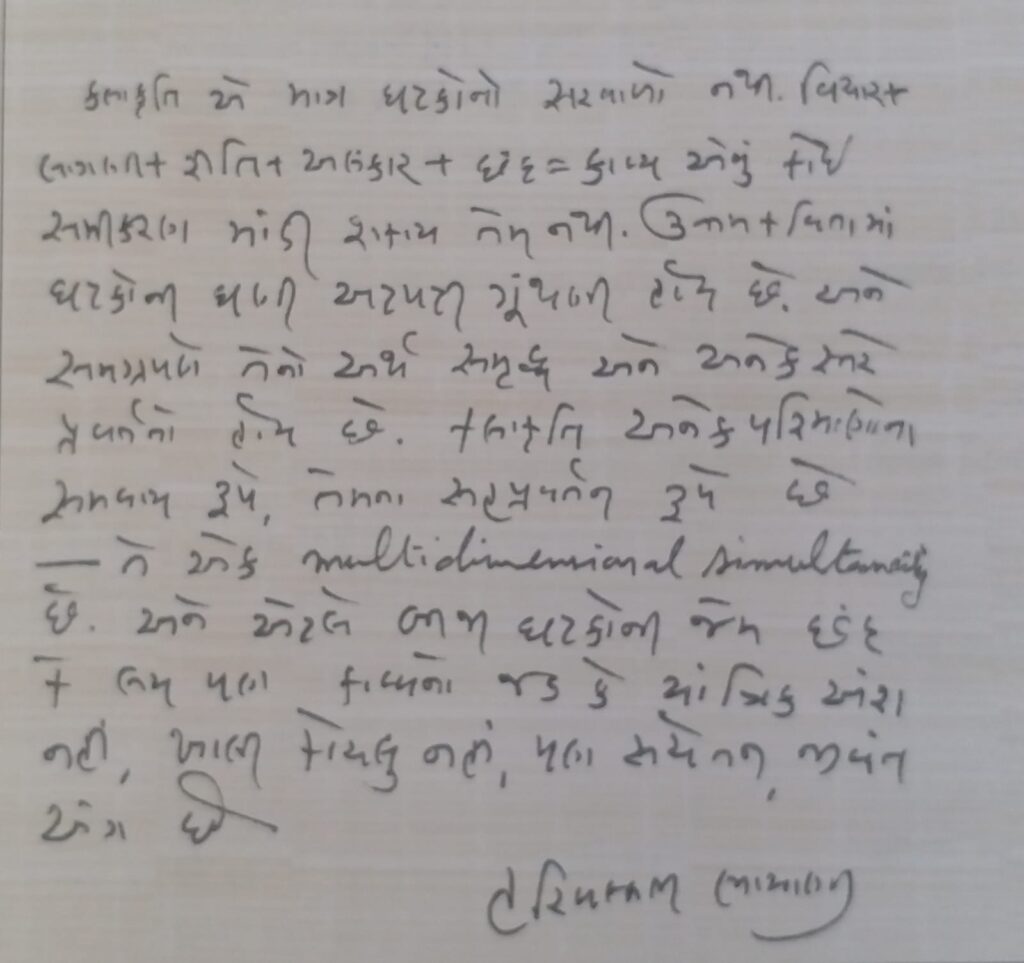 કલાકૃતિ એ માત્ર ઘટકોનો સરવાળો નથી. વિચાર+
લાગણી+ રીતિ+ અલંકાર + છંદ = કાવ્ય એવું કોઈ
સમીકરણ માંડી શકાય તેમ નથી. ઉત્તમ કવિતામાં
ઘટકોની ઘણી અટપટી ગૂંથણી હોય છે. અને
સમગ્રપણે તેનો અર્થ સમૃદ્ધ અને અનેક સ્તરે
પ્રવર્તતો હોય છે. કલાકૃતિ અનેક પરિમાણોના
સમવાય રૂપે, તેમના સહપ્રવર્તન રૂપે છે
— તે એક multidimensional simultaneity
છે. અને એટલે બીજા ઘટકોની જેમ છંદ
કે લય પણ કાવ્યનો જડ કે યાંત્રિક અંશ
નહીં, ખાલી કોચલું નહીં, પણ સચેતન, જીવંત
અંગ છે
હરિવલ્લભ ભાયાણી